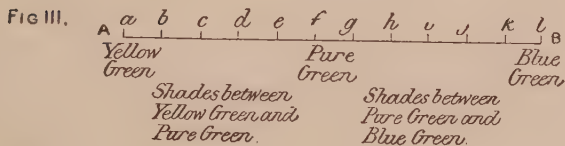 Fig III.
A a b c d e f g h i j k l B
Yellow Green
Pure Green
Blue Green
Shades between
Yellow Green and
Pure Green.
Shades between
Pure Green and
Blue Green.